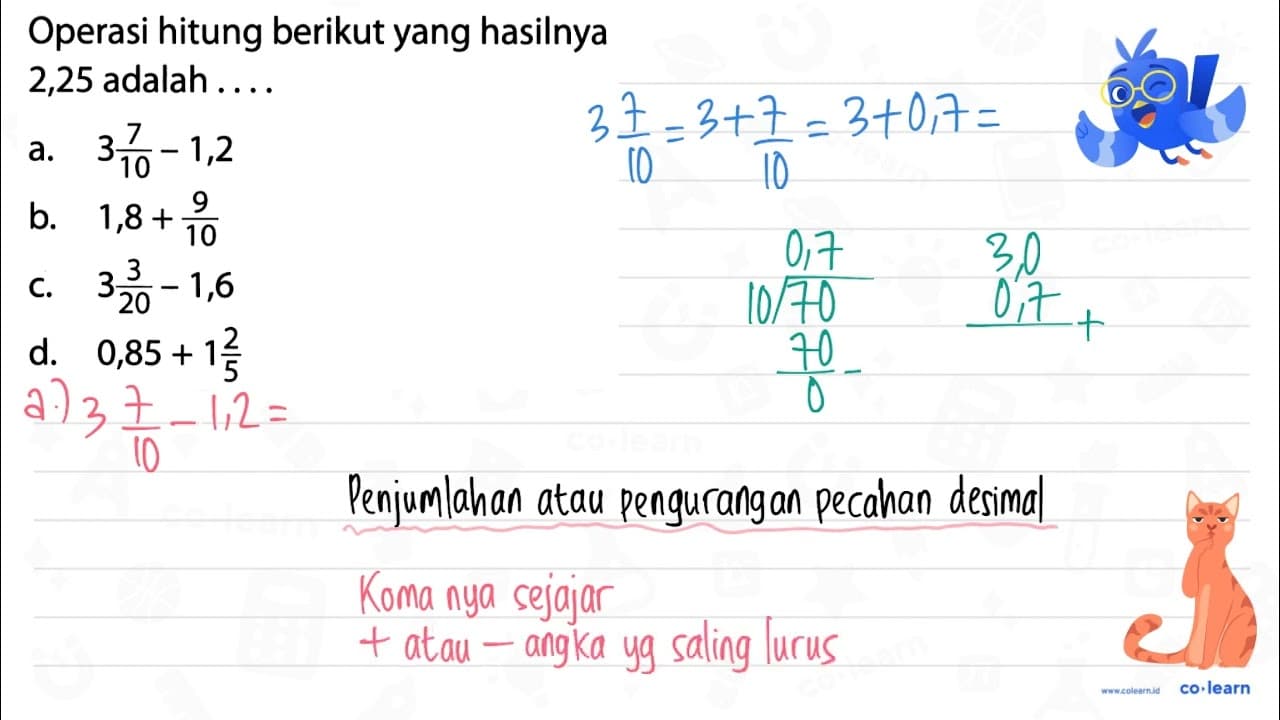 Operasi hitung berikut yang hasilnya
2,25 adalah . . . .
a. 3 7/10 – 1,2
b. 1,8 + 9/10
c. 3 3/20 – 1,6
d. 0,85 + 1 2/5
a.) 3 7/10 – 1,2 =
3 7/10 = 3 + 7/10 = 3 + 0,7 =
0,7
10/70
70
–
0
3,0
0,7
+
Penjumlahan atau pengurangan pecahan desimal
Koma nya sejajar
+ atau – angka yg saling lurus
www.colearn.id co·learn